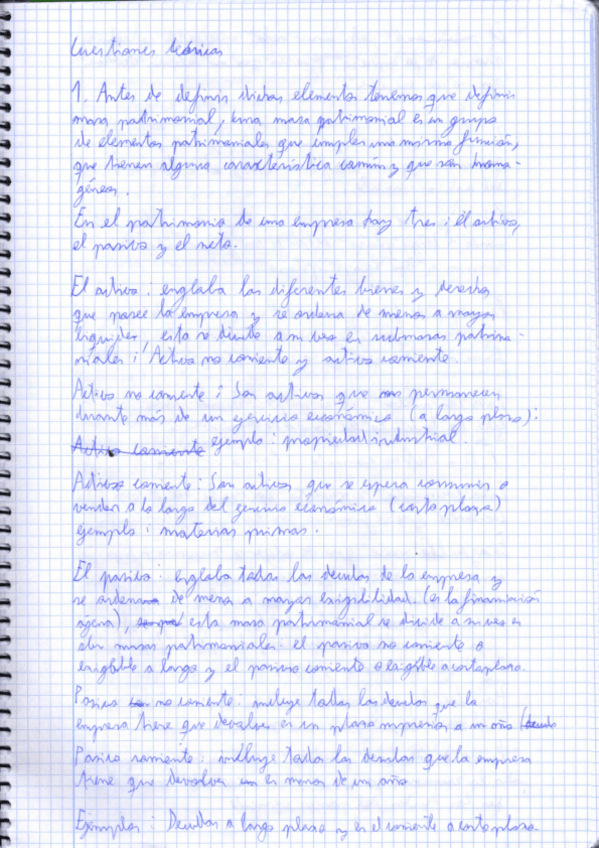 Cuestiones teóricas
1. Antes de definir dichos elementos tenemos que definir
masa patrimonial, una masa patrimonial es un grupo
de elementos patrimoniales que cumplen una misma función,
que tienen alguna característica común y que son homo-
géneos.
En el patrimonio de una empresa hay tres: El activo,
el pasivo y el neto.
El activo: engloba los diferentes bienes y derechos
que posee la empresa y se ordena de menos a mayor
liquidez, esta se divide a su vez en submasas patrimo-
niales: Activo no corriente y activo corriente.
Activo no corriente: Son activos que permanecen
durante más de un ejercicio económico (a largo plazo):
Activo corriente ejemplo: propiedad industrial.
Activo corriente: Son activos que se espera consumir o
vender a lo largo del ejercicio económico (corto plazo)
ejemplo: materias primas.
El pasivo: engloba todas las deudas de la empresa y
se ordenan de menor a mayor exigibilidad. (es la financiación
ajena), esta masa patrimonial se divide a su vez en
otras masas patrimoniales: el pasivo no corriente o
exigible a largo y el pasivo corriente o exigible a corto plazo.
Pasivo no corriente: incluye todas las deudas que la
empresa tiene que devolver en un plazo superior a un año
Pasivo corriente: incluye todas las deudas que la empresa
tiene que devolver en menos de un año.
Ejemplos: Deudas a largo plazo y en el corriente a corto plazo.